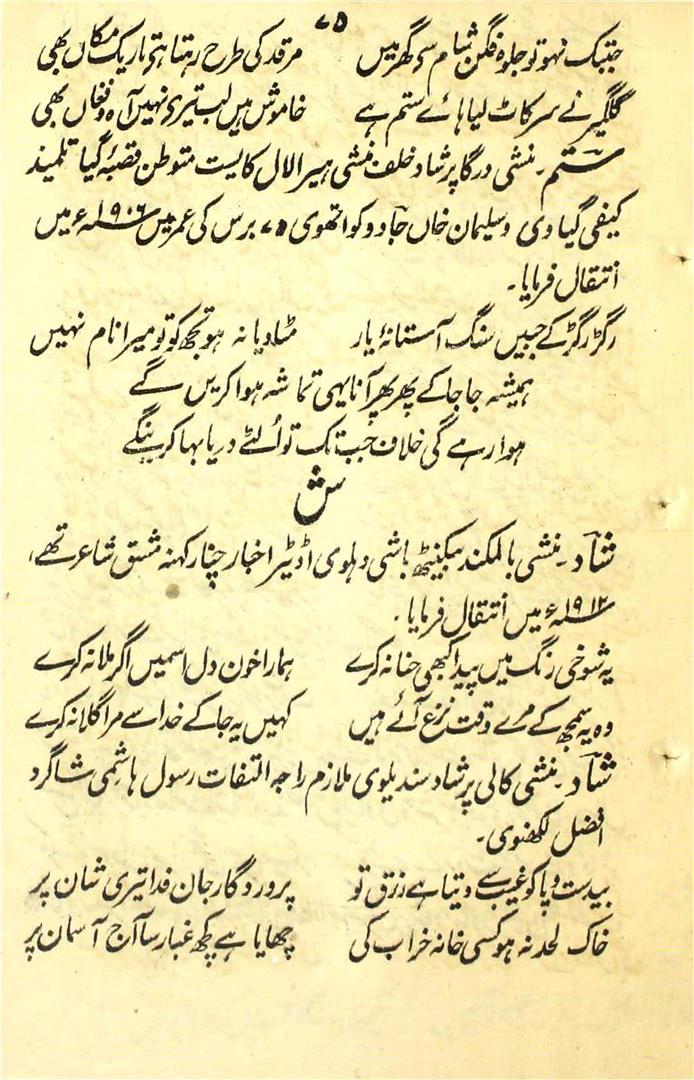 ۷۵
جبتک نہو تو جلوہ فگن شام سے گھر میں مرقد کی طرح رہتا ہے تاریک مکاں بھی
گلگیر نے سر کاٹ لیا ہائے ستم ہے خاموش ہیں لب تیرے نہیں آہ و فغاں بھی
ستم۔ منشی درگا پرشاد خلف منشی ہیرا لال کایست متوطن قصبۂ گیا تلمیذ
کیفی گیاوی و سلیمان خاں جادو کواتھوی ۷۵ برس کی عمر میں ۱۹۰۶ء میں
انتقال فرمایا۔
رگڑ رگڑ کے جبیں سنگ آستانۂ یار مٹا دیا نہ ہو تجھ کو تو میرا نام نہیں
ہمیشہ جا جا کے پھر پھر آنا یہی تماشہ ہوا کریں گے
ہوا رہے گی خلاف جب تک تو اُلٹے دریا بہا کرینگے
س‍ش
شاد۔ منشی بالمکند بیکنیٹھ باشی دہلوی اڈیٹر اخبار چنار کہنہ مشق شاعر تھے،
۱۹۱۲ء میں انتقال فرمایا۔
یہ شوخی رنگ میں پیدا کبھی حنا نہ کرے ہمارا خون دل اسمیں اگر ملا نہ کرے
وہ یہ سمجھ کے مرے وقت نزع آئے ہیں کہیں یہ جا کے خدا سے مرا گلا نہ کرے
شاد۔ منشی کالی پرشاد سندیلوی ملازم راجہ التفات رسول ہاشمی شاگرد
افضل لکھنوی۔
بیدست و پا کو غیب سے دیتا ہے رزق تو پروردگار جان فدا تیری شان پر
خاک لحد نہ ہو کسی خانہ خراب کی چھایا ہے کچھ غبار سا آج آسمان پر